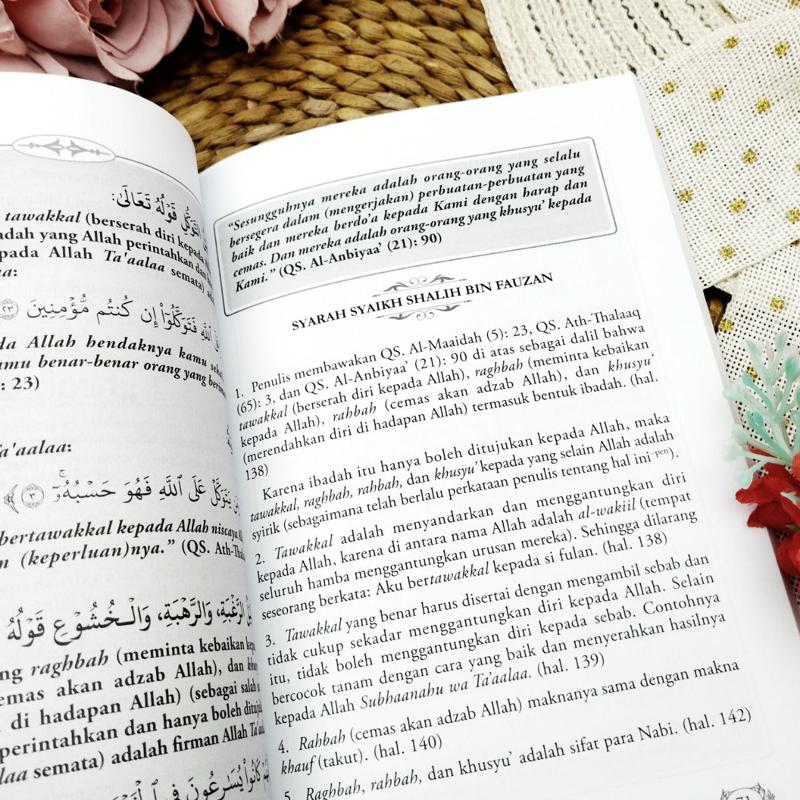 التَّوَكُّلِ قَوْلُهُ تَعَالَىٰ:
tawakkal (berserah diri kepada
adah yang Allah perintahkan dan
kepada Allah Ta'aalaa semata)
aa:
اللَّهِ فَتَوَكَّلُوٓا۟ إِن كُنتُم مُّؤْمِنِينَ ﴿٢٣﴾
da Allah hendaknya kamu
amu benar-benar orang yang
: 23)
Ta'aalaa:
يَتَوَكَّلْ عَلَى ٱللَّهِ فَهُوَ حَسْبُهُۥٓ ۚ ﴿٣﴾
bertawakkal kepada Allah niscaya
n (keperluan)nya." (QS.
الرَّغْبَةِ، وَالرَّهْبَةِ، وَالْخُشُوْعِ قَوْلُهُ
ng raghbah (meminta kebaikan
emas akan adzab Allah), dan
di hadapan Allah) (sebagai salah
perintahkan dan hanya boleh
laa semata) adalah firman Allah
كَانُوا۟ يُسَٰرِعُونَ فِى
"Sesungguhnya mereka adalah orang-orang yang selalu
bersegera dalam (mengerjakan) perbuatan-perbuatan yang
baik dan mereka berdo'a kepada Kami dengan harap dan
cemas. Dan mereka adalah orang-orang yang khusyu' kepada
Kami." (QS. Al-Anbiyaa' (21): 90)
SYARAH SYAIKH SHALIH BIN FAUZAN
1. Penulis membawakan QS. Al-Maaidah (5): 23, QS. Ath-Thalaaq
(65): 3, dan QS. Al-Anbiyaa' (21): 90 di atas sebagai dalil bahwa
tawakkal (berserah diri kepada Allah), raghbah (meminta kebaikan
kepada Allah), rahbah (cemas akan adzab Allah), dan khusyu'
(merendahkan diri di hadapan Allah) termasuk bentuk ibadah. (hal.
138)
Karena ibadah itu hanya boleh ditujukan kepada Allah, maka
tawakkal, raghbah, rahbah, dan khusyu' kepada yang selain Allah adalah
syirik (sebagaimana telah berlalu perkataan penulis tentang hal ini-pen).
2. Tawakkal adalah menyandarkan dan menggantungkan diri
kepada Allah, karena di antara nama Allah adalah al-wakiil (tempat
seluruh hamba menggantungkan urusan mereka). Sehingga dilarang
seseorang berkata: Aku bertawakkal kepada si fulan. (hal. 138)
3. Tawakkal yang benar harus disertai dengan mengambil sebab dan
tidak cukup sekadar menggantungkan diri kepada Allah. Selain
itu, tidak boleh menggantungkan diri kepada sebab. Contohnya
bercocok tanam dengan cara yang baik dan menyerahkan hasilnya
kepada Allah Subhaanahu wa Ta'aalaa. (hal. 139)
4. Rahbah (cemas akan adzab Allah) maknanya sama dengan makna
khauf (takut). (hal. 140)
5. Raghbah, rahbah, dan khusyu' adalah sifat para Nabi. (hal. 142)